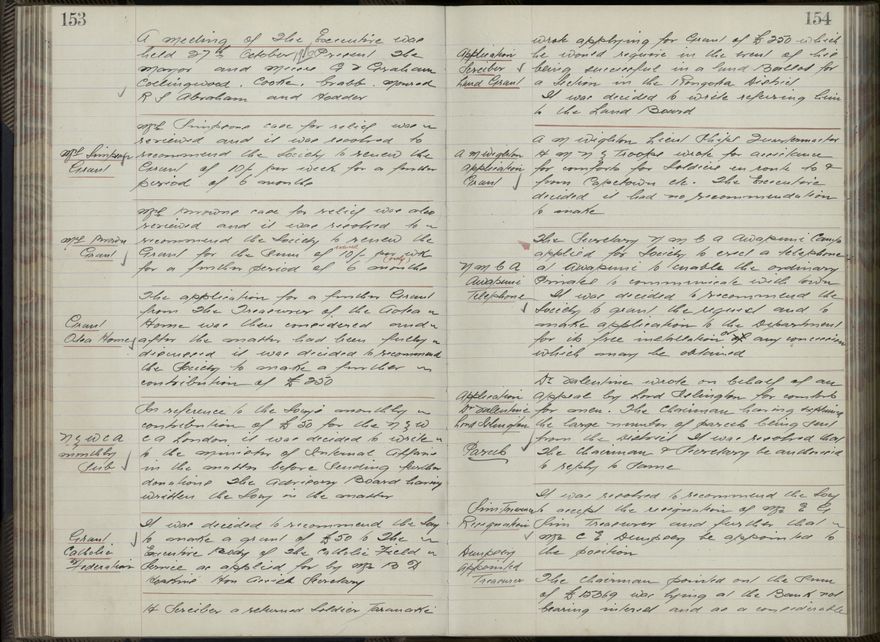 153
A meeting of the Executive was
held 27th October 1916 Present The
Mayor and Messrs
Collingwood, Cooke, Grabb,
R S Abraham and Hodder
Mrs Simpsons case for relief was
reviewed and it was resolved to
Mrs Simpson recommend the Society to renew the
Grant Grant of 10/- per week for a further
period of 6 months
Mrs Browns case for relief was also
reviewed and it was resolved to
Mrs Brown recommend the Society to renew the
Grant Grant for the sum of 10/- per wk
for a further period of 6 months
The application for a further Grant
from the Treasurer of the Aotea
Grant Home was then considered and
Aotea Home after the matter had been fully
discussed it was decided to recommend
the Society to make a further
contribution of £250
In reference to the Socys monthly
contribution of £50 for the N Z W
N Z W C A C A London it was decided to write
monthly to the Minister of Internal Affairs
Sub in the matter before sending further
donations The Advisory Board having
written the Socy in the matter
It was decided to recommend the Socy
Grant to make a grant of £50 to the
Catholic Executive Body of the Catholic Field
Federation Service as applied for by Mr B D
Hon Secretary
H Screiber a returned Soldier Taranaki
154
wrote applying for Grant of £250 which
Application he would require in the event of his
Screiber being successful in a Land Ballot for
Land Grant a Section in the District
It was decided to write referring him
to the Land Board
A M Wighton Lieut Ships Quartermaster
A M Wighton H M N Z Troops wrote for assistance
Application for comforts for Soldiers en route to &
Grant from Capetown etc. The Executive
decided it had no recommendation
to make
The Secretary Y M C A Awapuni Camp
applied for Society to erect a telephone
Y M C A at Awapuni to enable the ordinary
Awapuni Privates to communicate with town
Telephone It was decided to recommend the
Society to grant the request and to
make application to the Department
for its free installation or any concession
which may be obtained
Dr Valentine wrote on behalf of an
Application appeal by Lord Islington for comforts
Dr Valentine for men. The Chairman having explained
Lord Islington the large number of parcels being sent
from the District It was resolved that
Parcels the Chairman & Secretary be authorised
to reply to same
It was resolved to recommend the Socy
Sim Treasurer to accept the resignation of Mr E G
Resignation Sim Treasurer and further that
Mr C E Dempsey be appointed to
Dempsey the position
appointed
Treasurer The Chairman pointed out the sum
of £15369 was lying at the Bank not
bearing interest and as a considerable